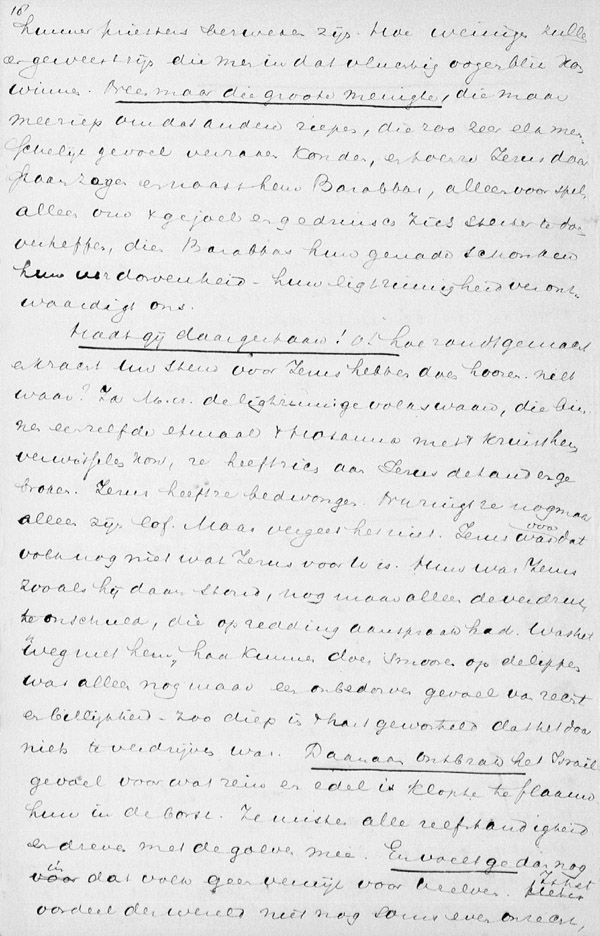 18
hunner priesters bewezen zijn. Hoe weinigen zullen
er geweest zijn die men in dat vluchtig oogenblik kon
winnen. Neen maar die groote menigte, die maar
meeriep omdat anderen riepen, die zoo zeer elk men-
schelijk gevoel verzaken konden, en toen ze Jezus daar
staan zagen en naast hem Barabbas, alleen voor spel,
alleen om 't gejoel en gedruisch zich sterker te doen
verheffen, dien Barabbas hun genade schonken
hun verdorvenheid - hun ligtzinnigheid veront-
waardigt ons.
Hadt gij daar gestaan! o! hoe zoudt ge met
kracht uw stem voor Jezus hebben doen hooren. niet
waar? Ja M. v. de ligtzinnige volkswaan, die bin-
nen eenzelfde etmaal 't Hosanna met 't kruist hem
verwisselen kon, ze heeft zich aan Jezus de tand ge-
broken. Jezus heeft ze bedwongen. Nu zingt ze nogmaals
alleen zijn lof. Maar vergeet het niet. Jezus was voor dat
volk nog niet wat Jezus voor u is. Hun was Jezus
zooals hij daar stond, nog maar alleen de verdruk-
te onschuld, die op redding aanspraak had. Wat het
"weg met hem" had kunnen doen smooren op de lippen
was alleen nog maar een onbedorven gevoel van recht
en billijkheid - Zoo diep in 't hart geworteld dat het door
niets te verdrijven was. Daaraan ontbrak het Israël
gevoel voor wat rein en edel is klopte te flaauw
hun in de borst. Ze misten alle zelfstandigheid
en dreven met de golven mee. En voelt ge dan nog
in dat volk geen verwijt voor velen. Is het
oordeel der wereld niet nog soms even onrecht,